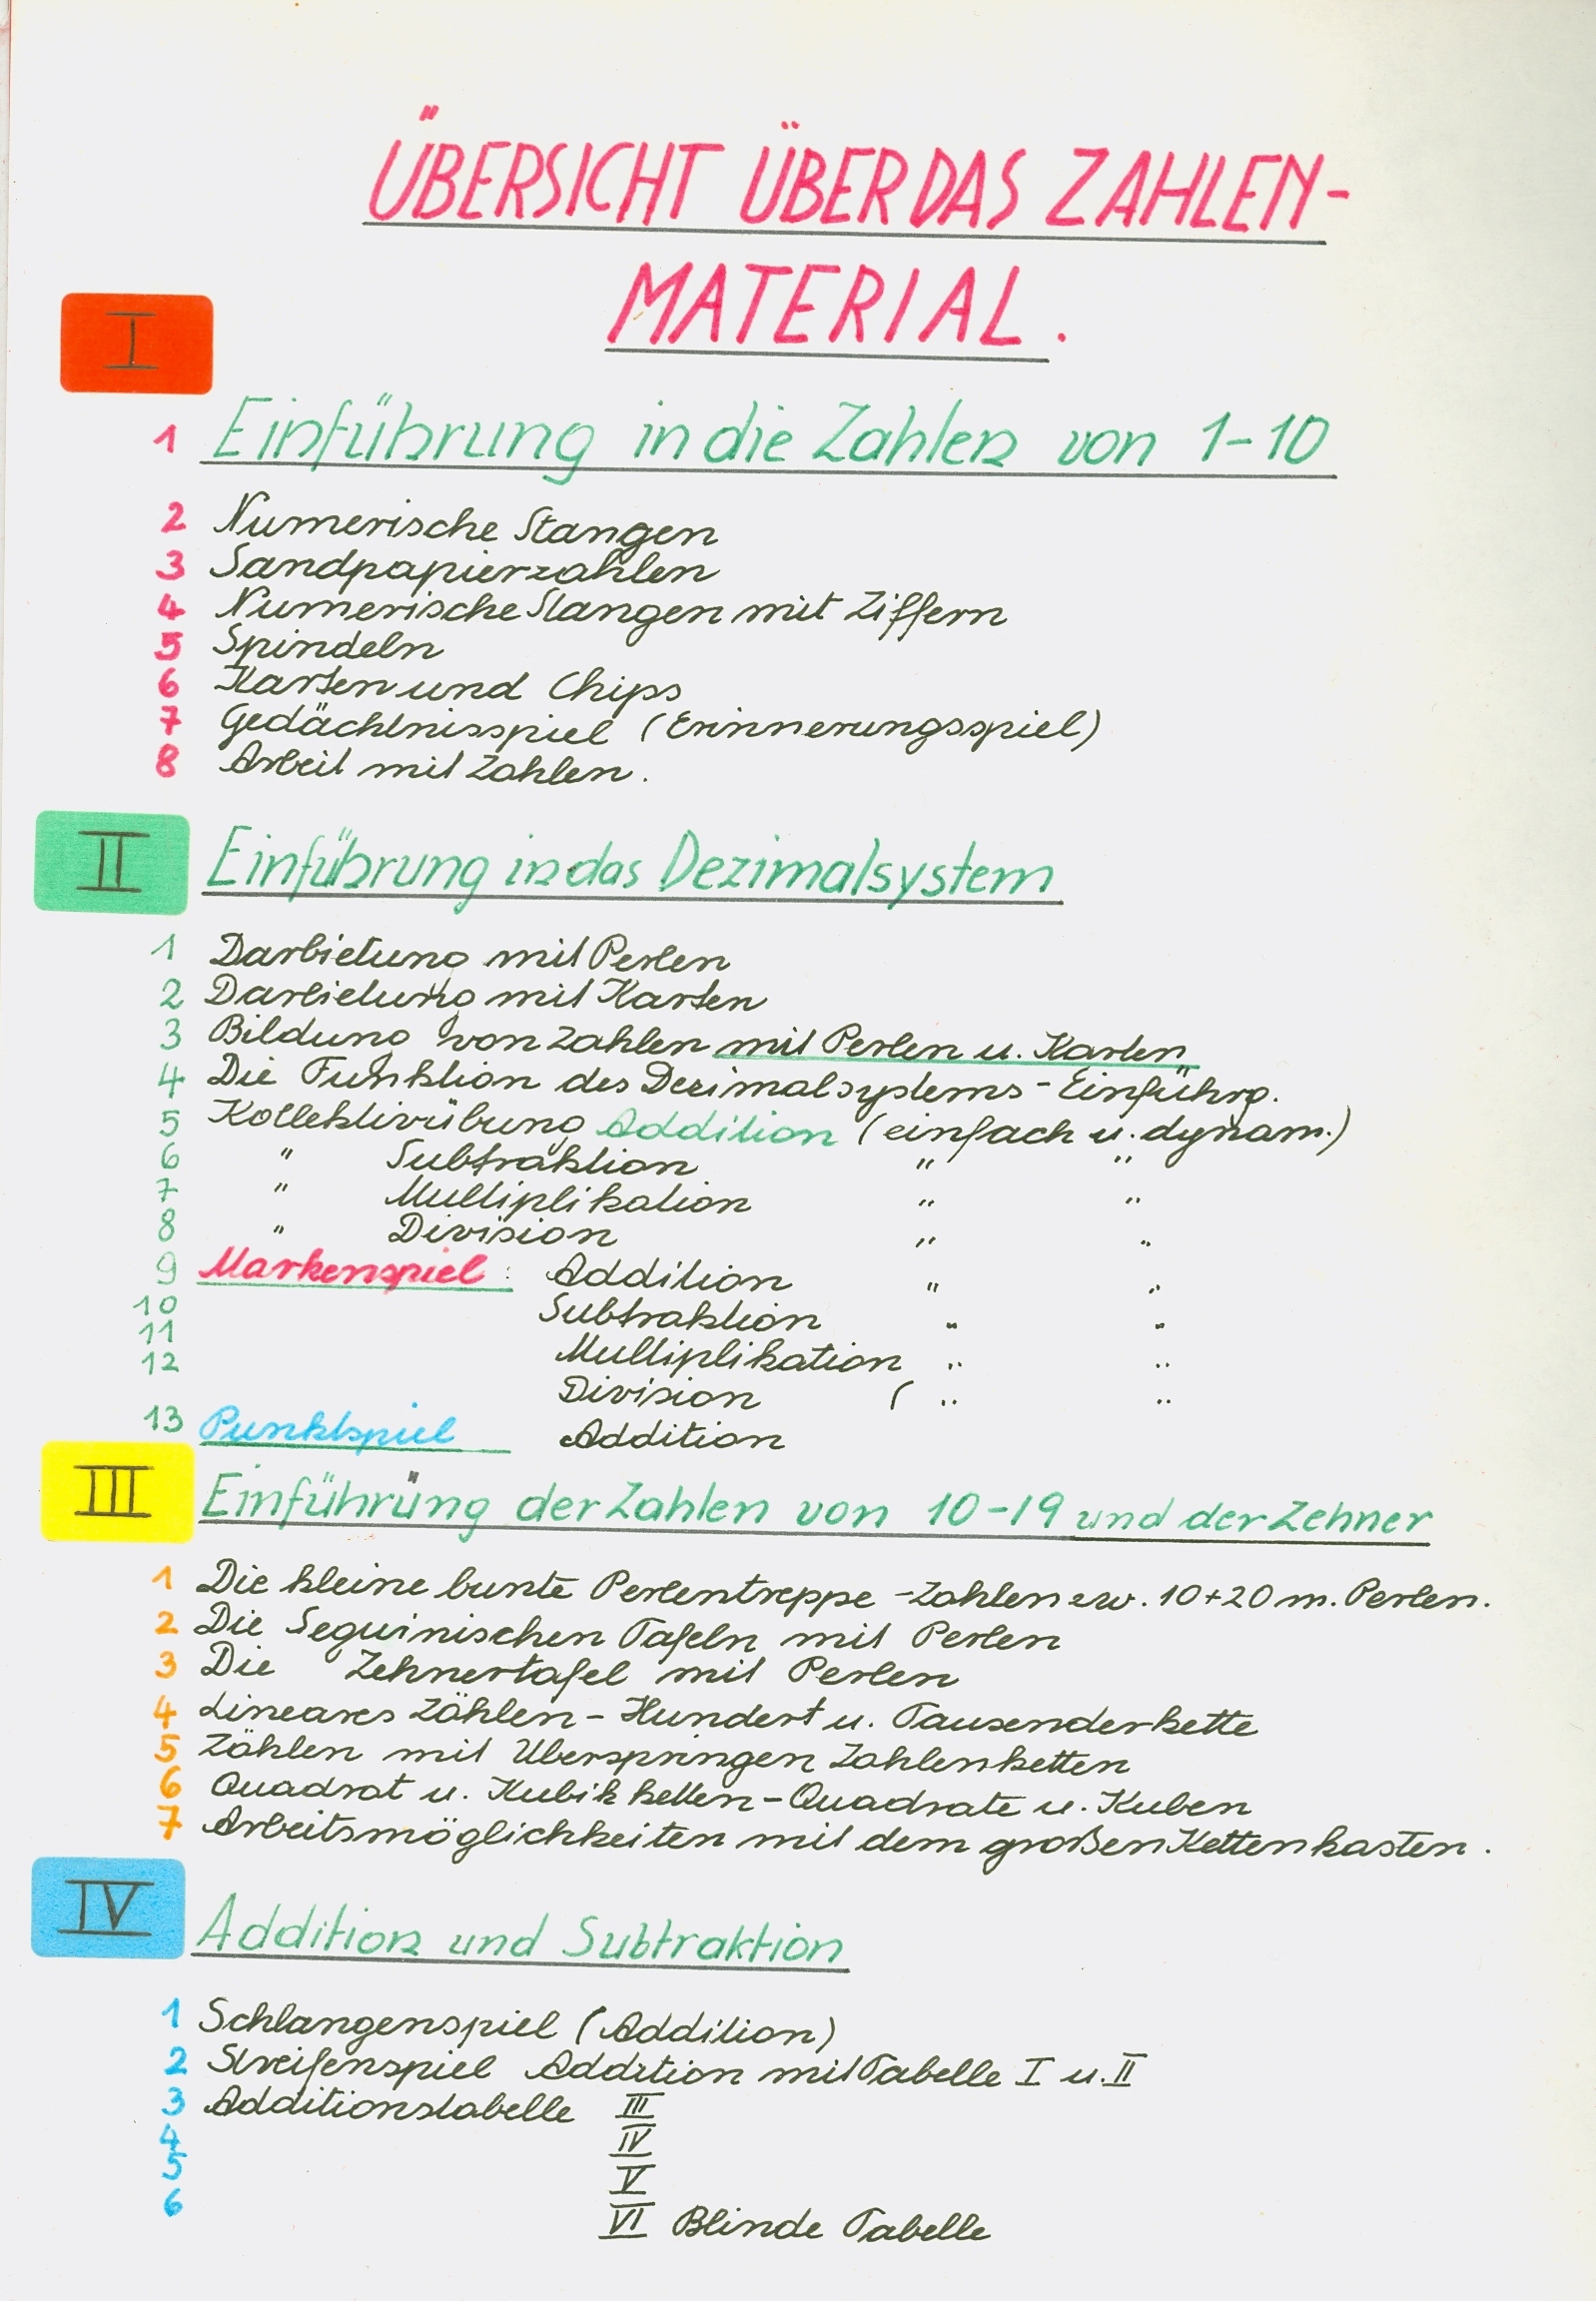 ÜBERSICHT ÜBER DAS ZAHLEN-
MATERIAL.
I
1 Einführung in die Zahlen von 1-10
2 Numerische Stangen
3 Sandpapierzahlen
4 Numerische Stangen mit Ziffern
5 Spindeln
6 Karten und Chips
7 Gedächtnisspiel (Erinnerungsspiel)
8 Arbeit mit Zahlen.
II Einführung in das Dezimalsystem
1 Darbietung mit Perlen
2 Darbietung mit Karten
3 Bildung von Zahlen mit Perlen u. Karten
4 Die Funktion des Dezimalsystems - Einführg.
5 Kollektivübung Addition (einfach u. dynam.)
6 " Subtraktion " "
7 " Multiplikation " "
8 " Division " "
9 Markenspiel: Addition " "
10 Subtraktion " "
11 Multiplikation " "
12 Division ( " "
13 Punktspiel Addition
III Einführüng der Zahlen von 10-19 und der Zehner
1 Die kleine bunte Perlentreppe - Zahlen zw. 10+20 m. Perlen.
2 Die Seguinischen Tafeln mit Perlen
3 Die Zehnertafel mit Perlen
4 Lineares Zählen - Hundert u. Tausenderkette
5 Zählen mit Überspringen Zahlenketten
6 Quadrat u. Kubikketten - Quadrate u. Kuben
7 Arbeitsmöglichkeiten mit dem großen Kettenkasten.
IV Addition und Subtraktion
1 Schlangenspiel (Addition)
2 Streifenspiel Addition mit Tabelle I u. II
3 Additionstabelle III
4 IV
5 V
6 VI Blinde Tabelle